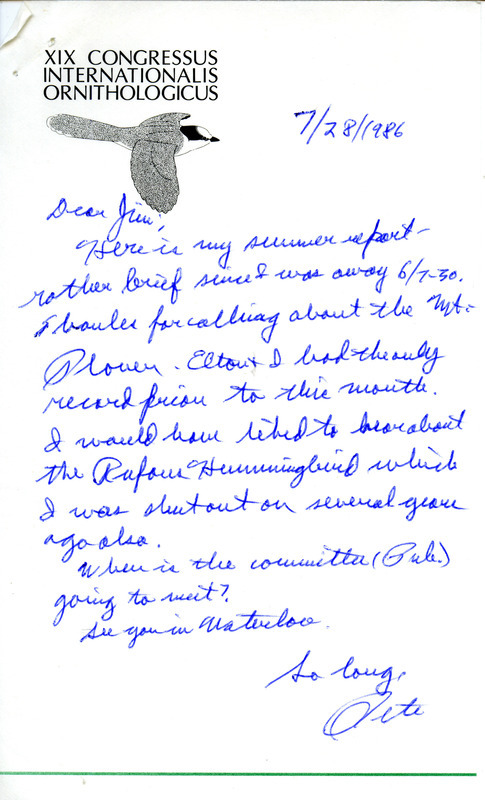 XIX CONGRESSUS
INTERNATIONALIS
ORNITHOLOGICUS
7/28/1986
Dear Jim,
Here is my summer report -
rather brief since I was away 6/7-30.
Thanks for calling about the Mt.
Plover. Elton & I had the only
record prior to this month.
I would have liked to hear about
the Rufous Hummingbird which
I was shut out on several years
ago also.
When is the committee (Pub.)
going to meet?
See you in Waterloo.
So long,
Pete